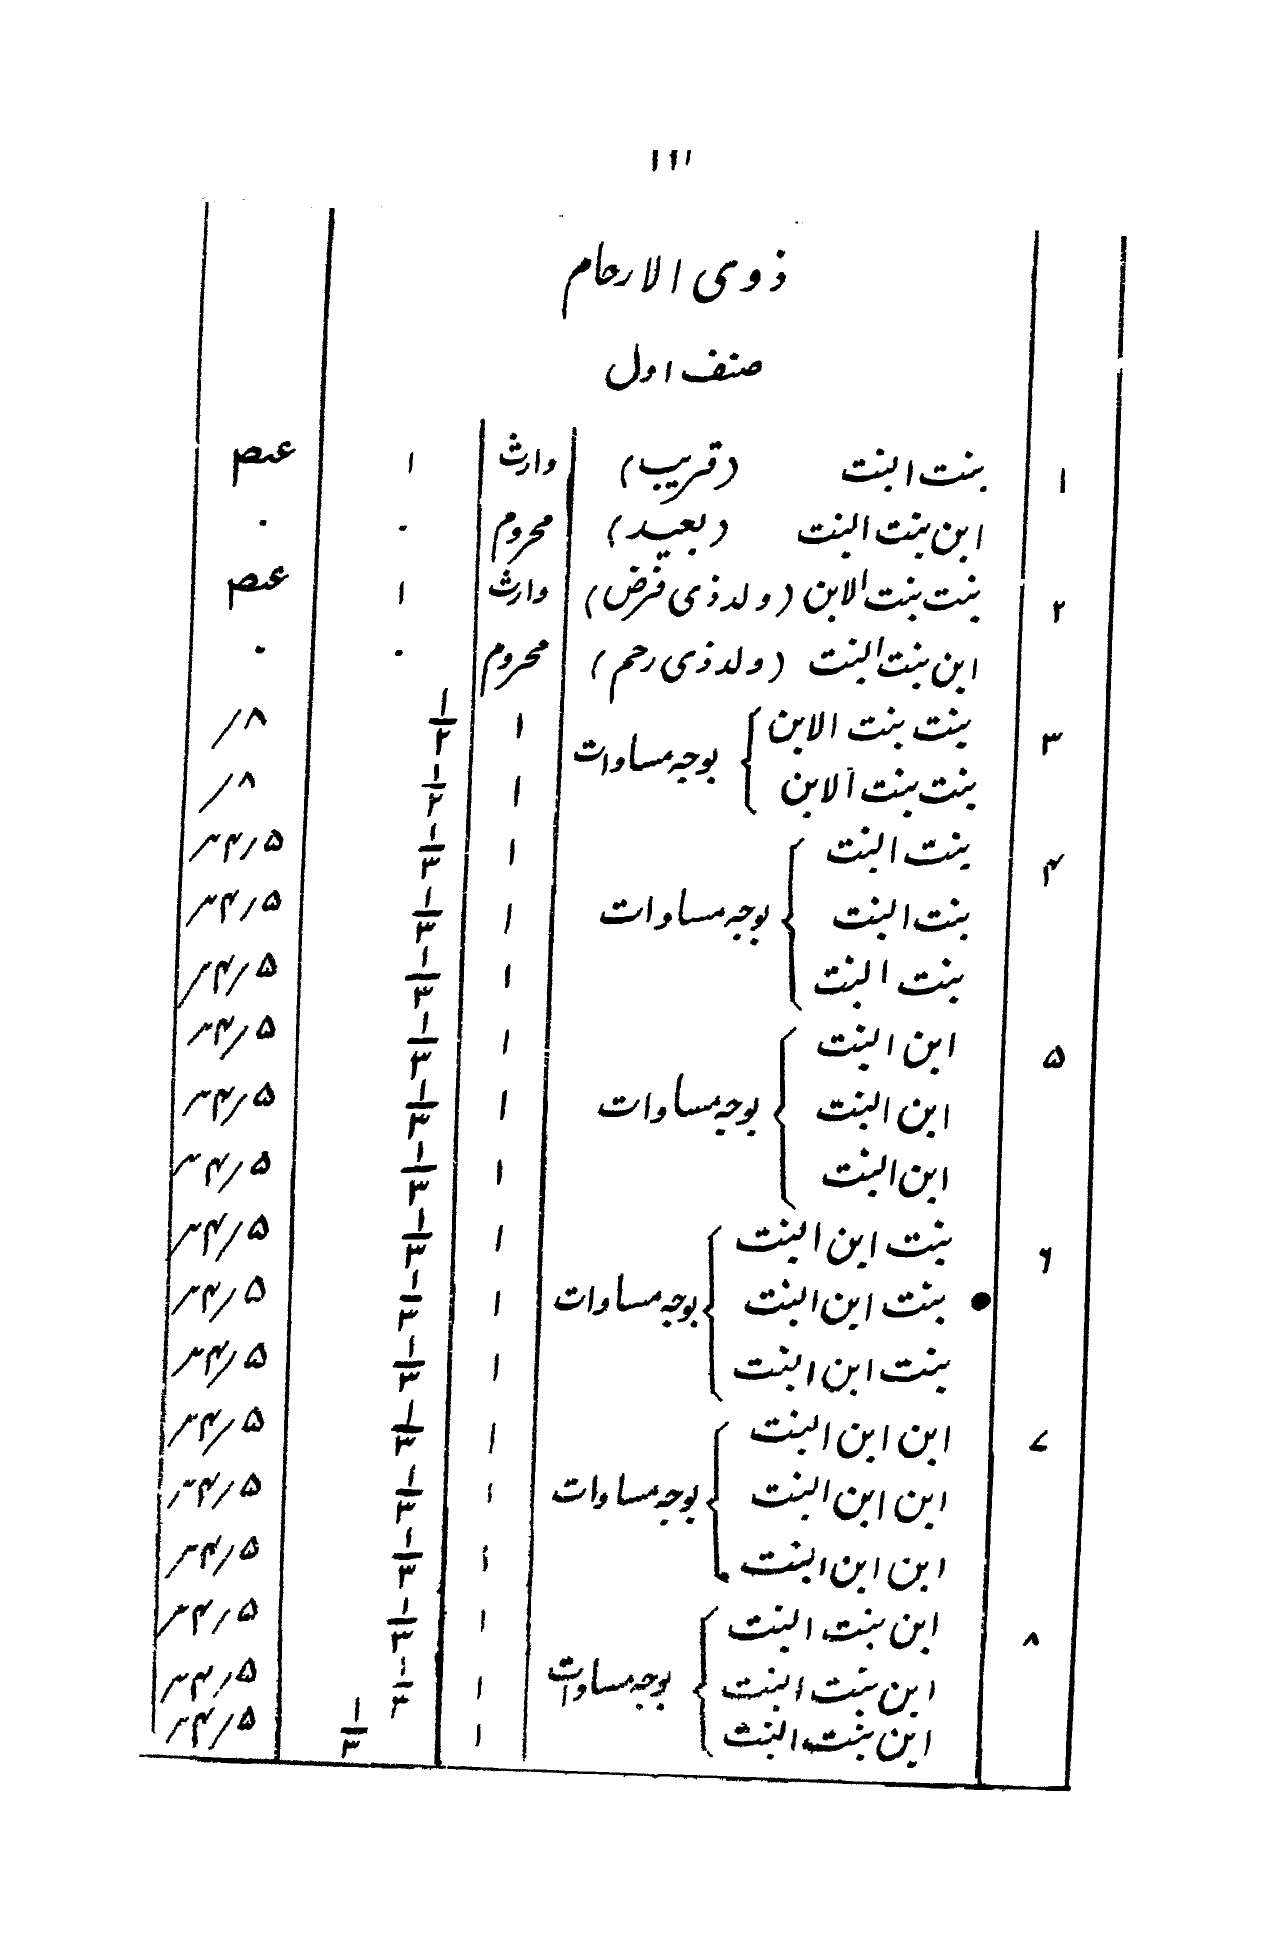 ۱۱۱
ذوی الارحام
صنف اول
۱ بنت البنت (قریب) وارث ۱ عہ
ابن بنت البنت (بعید) محروم ۰ ۰
۲ بنت بنت الابن (ولد ذی فرض) وارث ۱ عہ
ابن بنت البنت (ولد ذی رحم) محروم ۰ ۰
۳ بنت بنت الابن } بوجہ مساوات ۱ ۱/۲ ۸/
بنت بنت الابن ۱ ۱/۲ ۸/
۴ بنت البنت ۱ ۱/۳ ۵/۴
بنت البنت } بوجہ مساوات ۱ ۱/۳ ۵/۴
بنت البنت ۱ ۱/۳ ۵/۴
۵ ابن البنت ۱ ۱/۳ ۵/۴
ابن البنت } بوجہ مساوات ۱ ۱/۳ ۵/۴
ابن البنت ۱ ۱/۳ ۵/۴
۶ بنت ابن البنت ۱ ۱/۳ ۵/۴
بنت ابن البنت } بوجہ مساوات ۱ ۱/۳ ۵/۴
بنت ابن البنت ۱ ۱/۳ ۵/۴
۷ ابن ابن البنت ۱ ۱/۳ ۵/۴
ابن ابن البنت } بوجہ مساوات ۱ ۱/۳ ۵/۴
ابن ابن البنت ۱ ۱/۳ ۵/۴
۸ ابن بنت البنت ۱ ۱/۳ ۵/۴
ابن بنت البنت } بوجہ مساوات ۱ ۱/۳ ۵/۴
ابن بنت البنت ۱ ۱/۳ ۵/۴